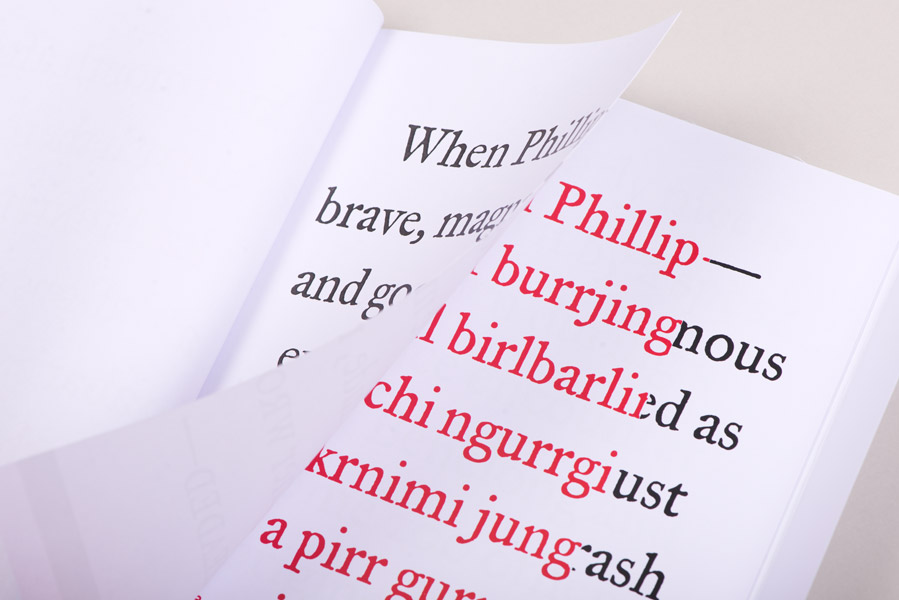 When Philli
brave, magn
and go
Phillip—
burrjingnous
l birlbarlied as
chi ngurrgiust
krnimi jungrash
a pirr gur